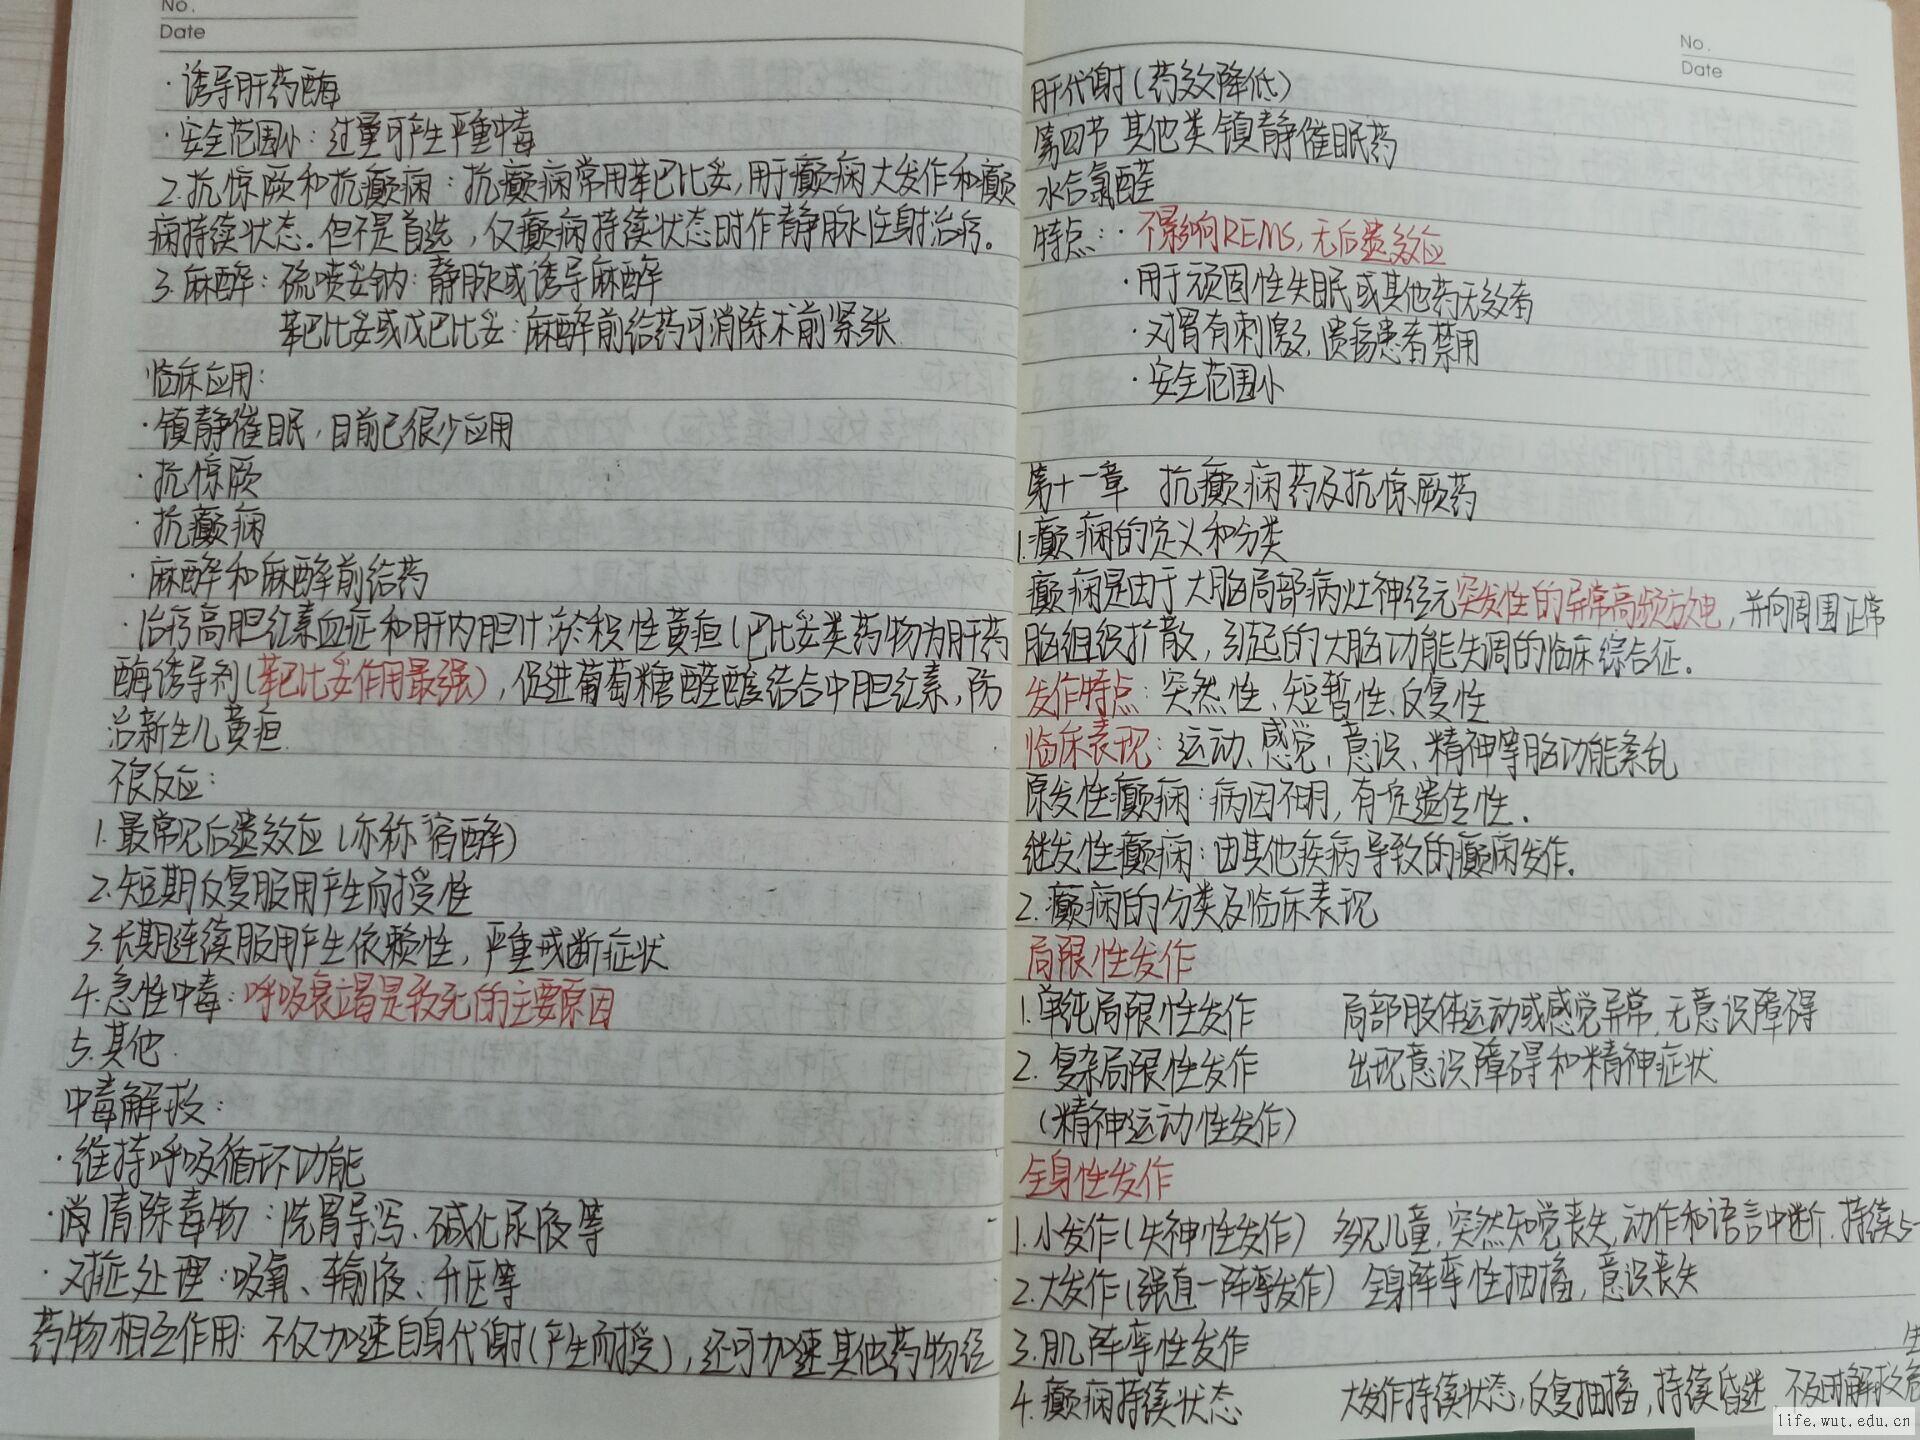 No.
Date
·诱导肝药酶
·安全范围小：过量可产生严重中毒
2.抗惊厥和抗癫痫：抗癫痫常用苯巴比妥,用于癫痫大发作和癫
痫持续状态。但不是首选，仅癫痫持续状态时作静脉注射治疗。
3.麻醉：硫喷妥钠：静脉或诱导麻醉
苯巴比妥或戊巴比妥：麻醉前给药可消除术前紧张
临床应用：
·镇静催眠，目前已很少应用
·抗惊厥
·抗癫痫
·麻醉和麻醉前给药
·治疗高胆红素血症和肝内胆汁淤积性黄疸(巴比妥类药物为肝药
酶诱导剂(苯巴比妥作用最强)，促进葡萄糖醛酸结合中胆红素，防
治新生儿黄疸
不良反应：
1.最常见后遗效应(亦称宿醉)
2.短期反复服用产生耐受性
3.长期连续服用产生依赖性，严重戒断症状
4.急性中毒：呼吸衰竭是致死的主要原因
5.其他
中毒解救：
·维持呼吸循环功能
·清除毒物：洗胃导泻、碱化尿液等
·对症处理：吸氧、输液、升压等
药物相互作用：不仅加速自身代谢(产生耐受)，还可加速其他药物经
No.
Date
肝代谢(药效降低)
第四节 其他类镇静催眠药
水合氯醛
特点：·不影响REMS,无后遗效应
·用于顽固性失眠或其他药无效者
·对胃有刺激,溃疡患者禁用
·安全范围小
第十一章 抗癫痫药及抗惊厥药
1.癫痫的定义和分类
癫痫是由于大脑局部病灶神经元突发性的异常高频放电，并向周围正常
脑组织扩散，引起的大脑功能失调的临床综合征.
发作特点：突然性、短暂性、反复性
临床表现：运动、感觉，意识、精神等脑功能紊乱
原发性癫痫：病因不明，有一定遗传性.
继发性癫痫：由其他疾病导致的癫痫发作.
2.癫痫的分类及临床表现
局限性发作
1.单纯局限性发作 局部肢体运动或感觉异常,无意识障碍
2.复杂局限性发作 出现意识障碍和精神症状
(精神运动性发作)
全身性发作
1.小发作(失神性发作) 多见儿童,突然知觉丧失,动作和语言中断.持续5-
2.大发作(强直一阵挛发作) 全身阵挛性抽搐，意识丧失
3.肌阵挛性发作
4.癫痫持续状态 大发作持续状态,反复抽搐,持续昏迷 不及时解救危
life.wut.edu.cn